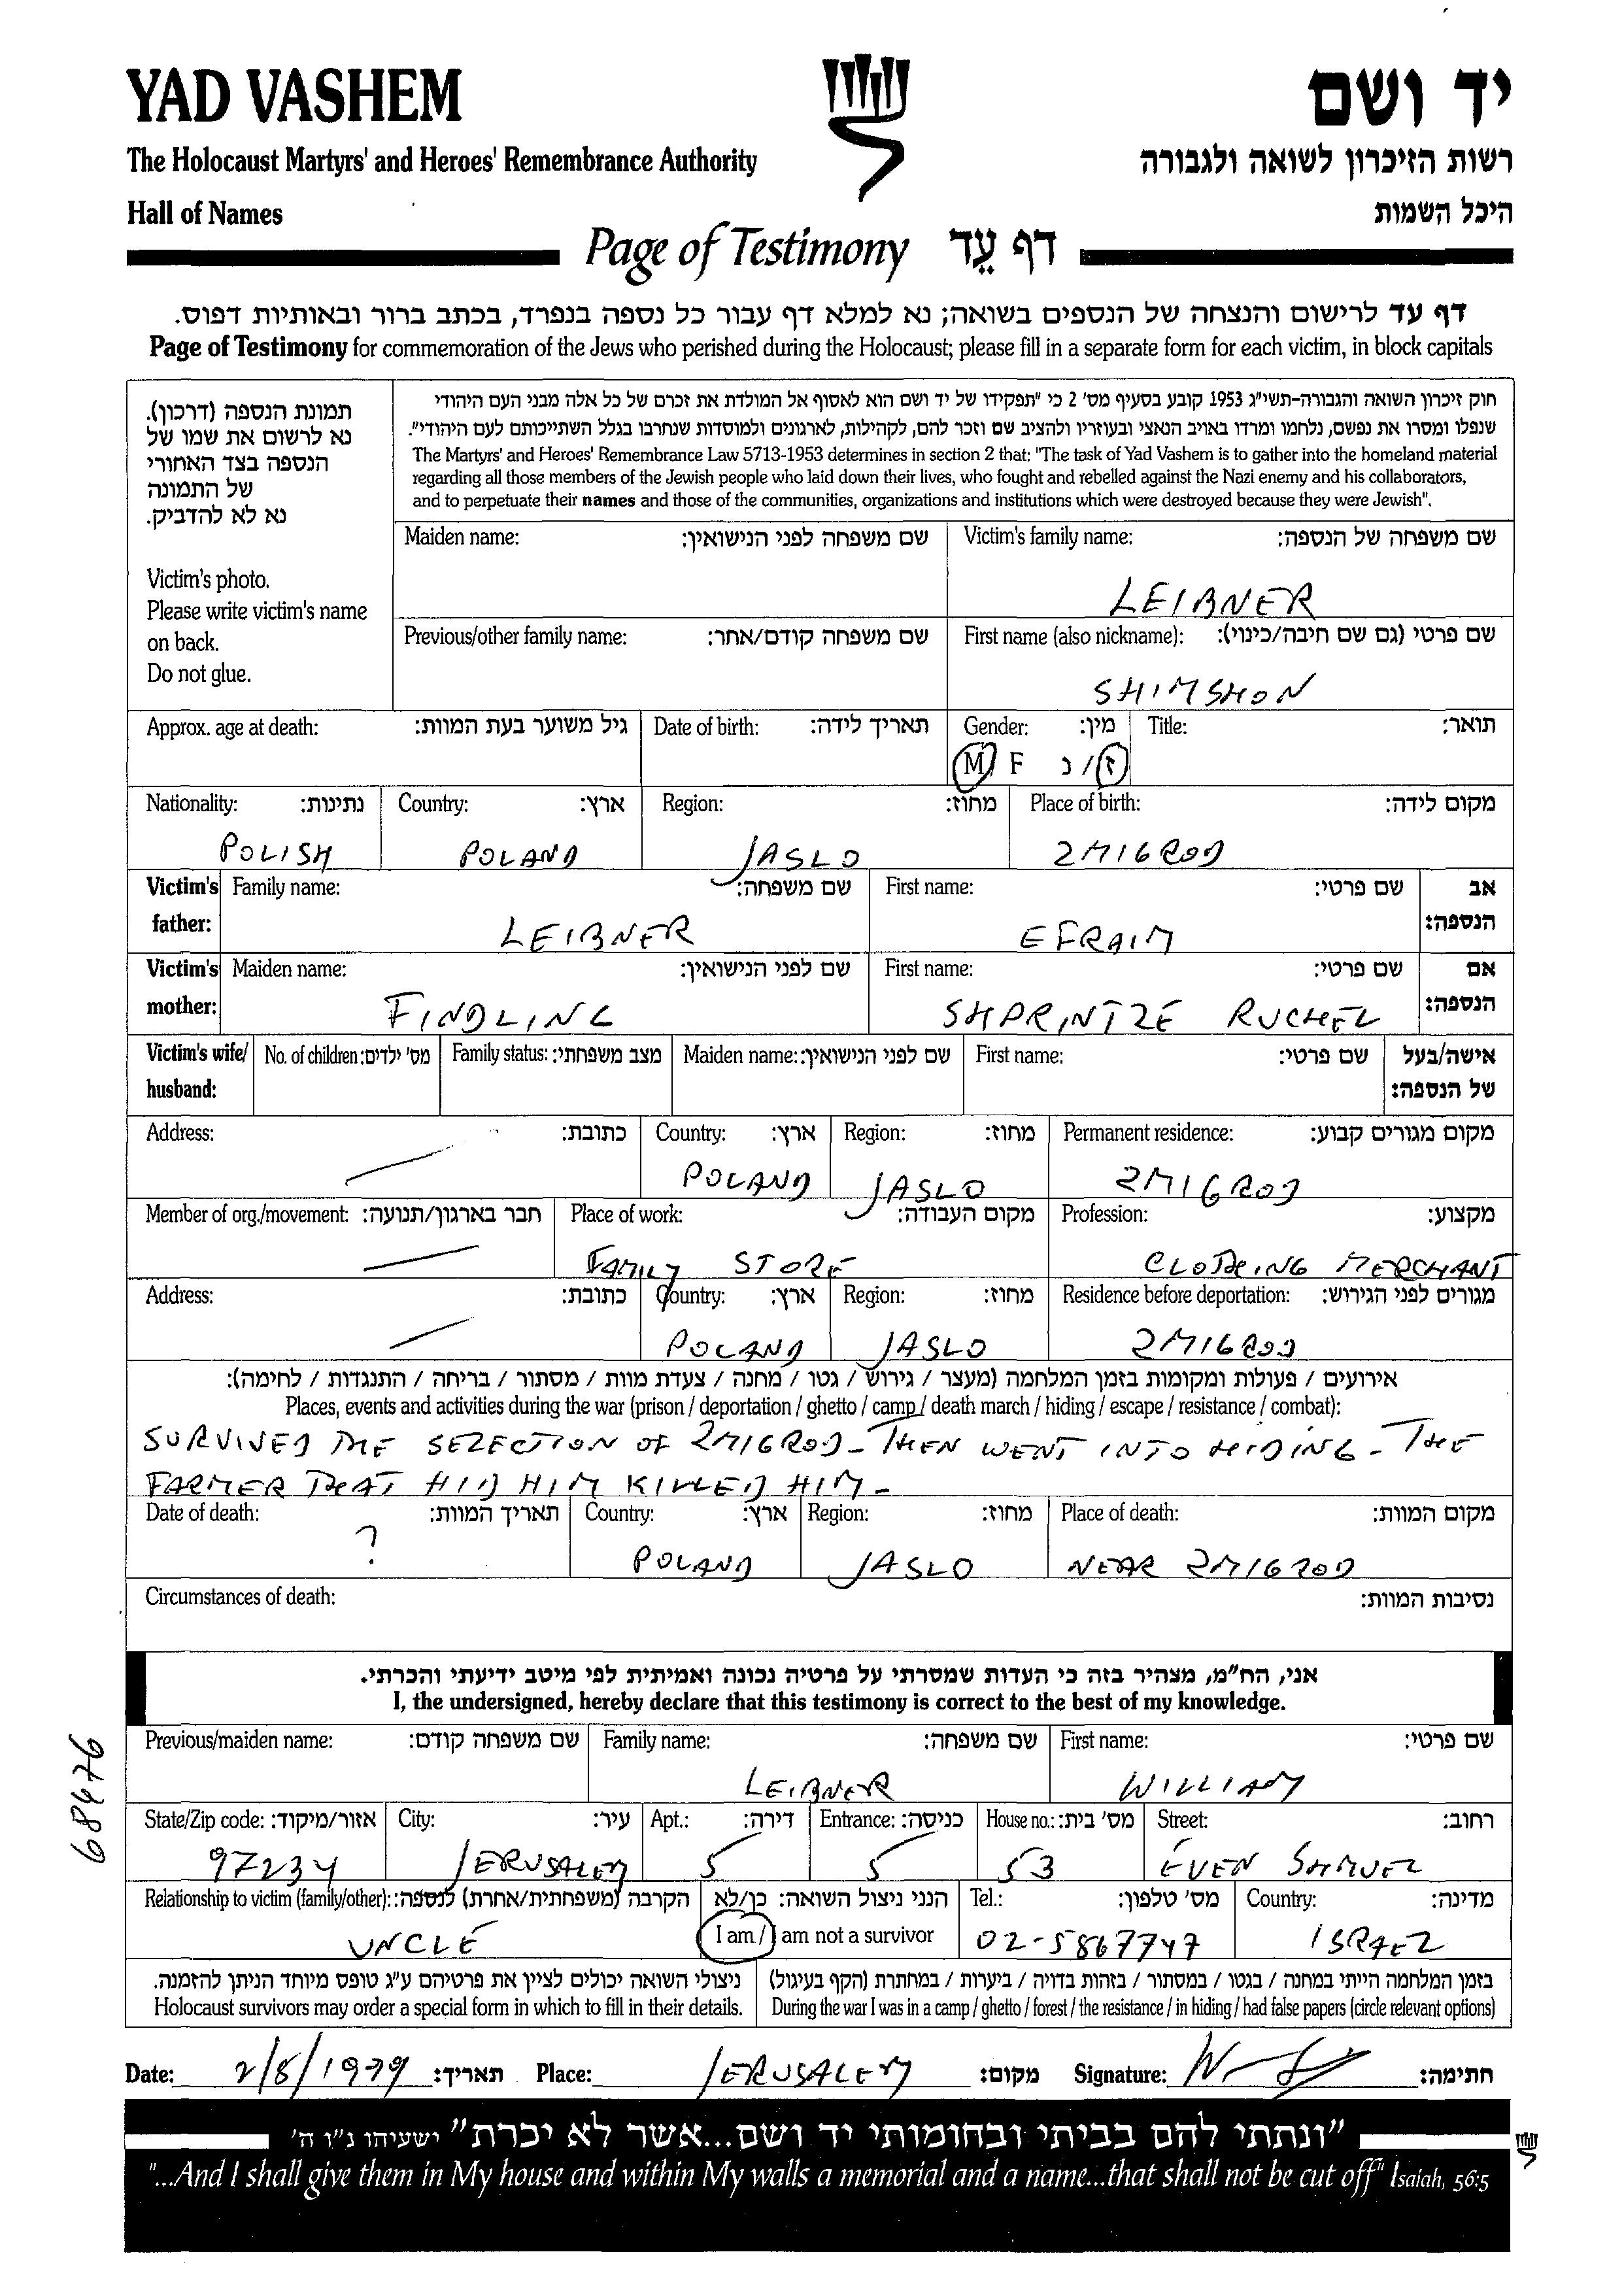 YAD VASHEM
יד ושם
The Holocaust Martyrs' and Heroes' Remembrance Authority
רשות הזיכרון לשואה ולגבורה
Hall of Names
היכל השמות
Page of Testimony דף עֵד
דף עד לרישום והנצחה של הנספים בשואה; נא למלא דף עבור כל נספה בנפרד, בכתב ברור ובאותיות דפוס.
Page of Testimony for commemoration of the Jews who perished during the Holocaust; please fill in a separate form for each victim, in block capitals
תמונת הנספה (דרכון).
נא לרשום את שמו של
הנספה בצד האחורי
של התמונה
נא לא להדביק.
Victim's photo.
Please write victim's name
on back.
Do not glue.
חוק זיכרון השואה והגבורה-תשי"ג 1953 קובע בסעיף מס' 2 כי "תפקידו של יד ושם הוא לאסוף אל המולדת את זכרם של כל אלה מבני העם היהודי
שנפלו ומסרו את נפשם, נלחמו ומרדו באויב הנאצי ובעוזריו ולהציב שם וזכר להם, לקהילות, לארגונים ולמוסדות שנחרבו בגלל השתייכותם לעם היהודי".
The Martyrs' and Heroes' Remembrance Law 5713-1953 determines in section 2 that: "The task of Yad Vashem is to gather into the homeland material
regarding all those members of the Jewish people who laid down their lives, who fought and rebelled against the Nazi enemy and his collaborators,
and to perpetuate their names and those of the communities, organizations and institutions which were destroyed because they were Jewish".
Maiden name: שם משפחה לפני הנישואין: Victim's family name: שם משפחה של הנספה:
LEIBNER
Previous/other family name: שם משפחה קודם/אחר: First name (also nickname): שם פרטי (גם שם חיבה/כינוי):
SHIMSHON
Approx. age at death: גיל משוער בעת המוות: Date of birth: תאריך לידה: Gender: מין: Title: תואר:
M F ז/נ
Nationality: נתינות: Country: ארץ: Region: מחוז: Place of birth: מקום לידה:
POLISH POLAND JASLO ZMIGROD
Victim's father: Family name: שם משפחה: First name: שם פרטי: אב הנספה:
LEIBNER EFRAIM
Victim's mother: Maiden name: שם לפני הנישואין: First name: שם פרטי: אם הנספה:
FINDLING SHPRINTZE RUCHEL
Victim's wife/ husband: No. of children: מס' ילדים: Family status: מצב משפחתי: Maiden name: שם לפני הנישואין: First name: שם פרטי: אישה/בעל של הנספה:
Address: כתובת: Country: ארץ: Region: מחוז: Permanent residence: מקום מגורים קבוע:
POLAND JASLO ZMIGROD
Member of org./movement: חבר בארגון/תנועה: Place of work: מקום העבודה: Profession: מקצוע:
FAMILY STORE CLOTHING MERCHANT
Address: כתובת: Country: ארץ: Region: מחוז: Residence before deportation: מגורים לפני הגירוש:
POLAND JASLO ZMIGROD
אירועים / פעולות ומקומות בזמן המלחמה (מעצר / גירוש / גטו / מחנה / צעדת מוות / מסתור / בריחה / התנגדות / לחימה):
Places, events and activities during the war (prison / deportation / ghetto / camp / death march / hiding / escape / resistance / combat):
SURVIVED THE SELECTION OF ZMIGROD - THEN WENT INTO HIDING - THE
FARMER THAT HID HIM KILLED HIM -
Date of death: תאריך המוות: Country: ארץ: Region: מחוז: Place of death: מקום המוות:
? POLAND JASLO NEAR ZMIGROD
Circumstances of death: נסיבות המוות:
אני, הח"מ, מצהיר בזה כי העדות שמסרתי על פרטיה נכונה ואמיתית לפי מיטב ידיעתי והכרתי.
I, the undersigned, hereby declare that this testimony is correct to the best of my knowledge.
68476
Previous/maiden name: שם משפחה קודם: Family name: שם משפחה: First name: שם פרטי:
LEIBNER WILLIAM
State/Zip code: אזור/מיקוד: City: עיר: Apt.: דירה: Entrance: כניסה: House no.: מס' בית: Street: רחוב:
97234 JERUSALEM 5 5 53 EVEN SHMUEL
Relationship to victim (family/other): הקרבה (משפחתית/אחרת) לנספה: הנני ניצול השואה: כן/לא Tel.: מס' טלפון: Country: מדינה:
UNCLE I am / I am not a survivor 02-5867747 ISRAEL
ניצולי השואה יכולים לציין את פרטיהם ע"ג טופס מיוחד הניתן להזמנה. בזמן המלחמה הייתי במחנה / בגטו / במסתור / בזהות בדויה / ביערות / במחתרת (הקף בעיגול)
Holocaust survivors may order a special form in which to fill in their details. During the war I was in a camp / ghetto / forest / the resistance / in hiding / had false papers (circle relevant options)
Date: 2/8/1999 תאריך: Place: JERUSALEM מקום: Signature: חתימה:
"ונתתי להם בביתי ובחומותי יד ושם...אשר לא יכרת" ישעיהו נ"ו ה'
"...And I shall give them in My house and within My walls a memorial and a name...that shall not be cut off" Isaiah, 56:5